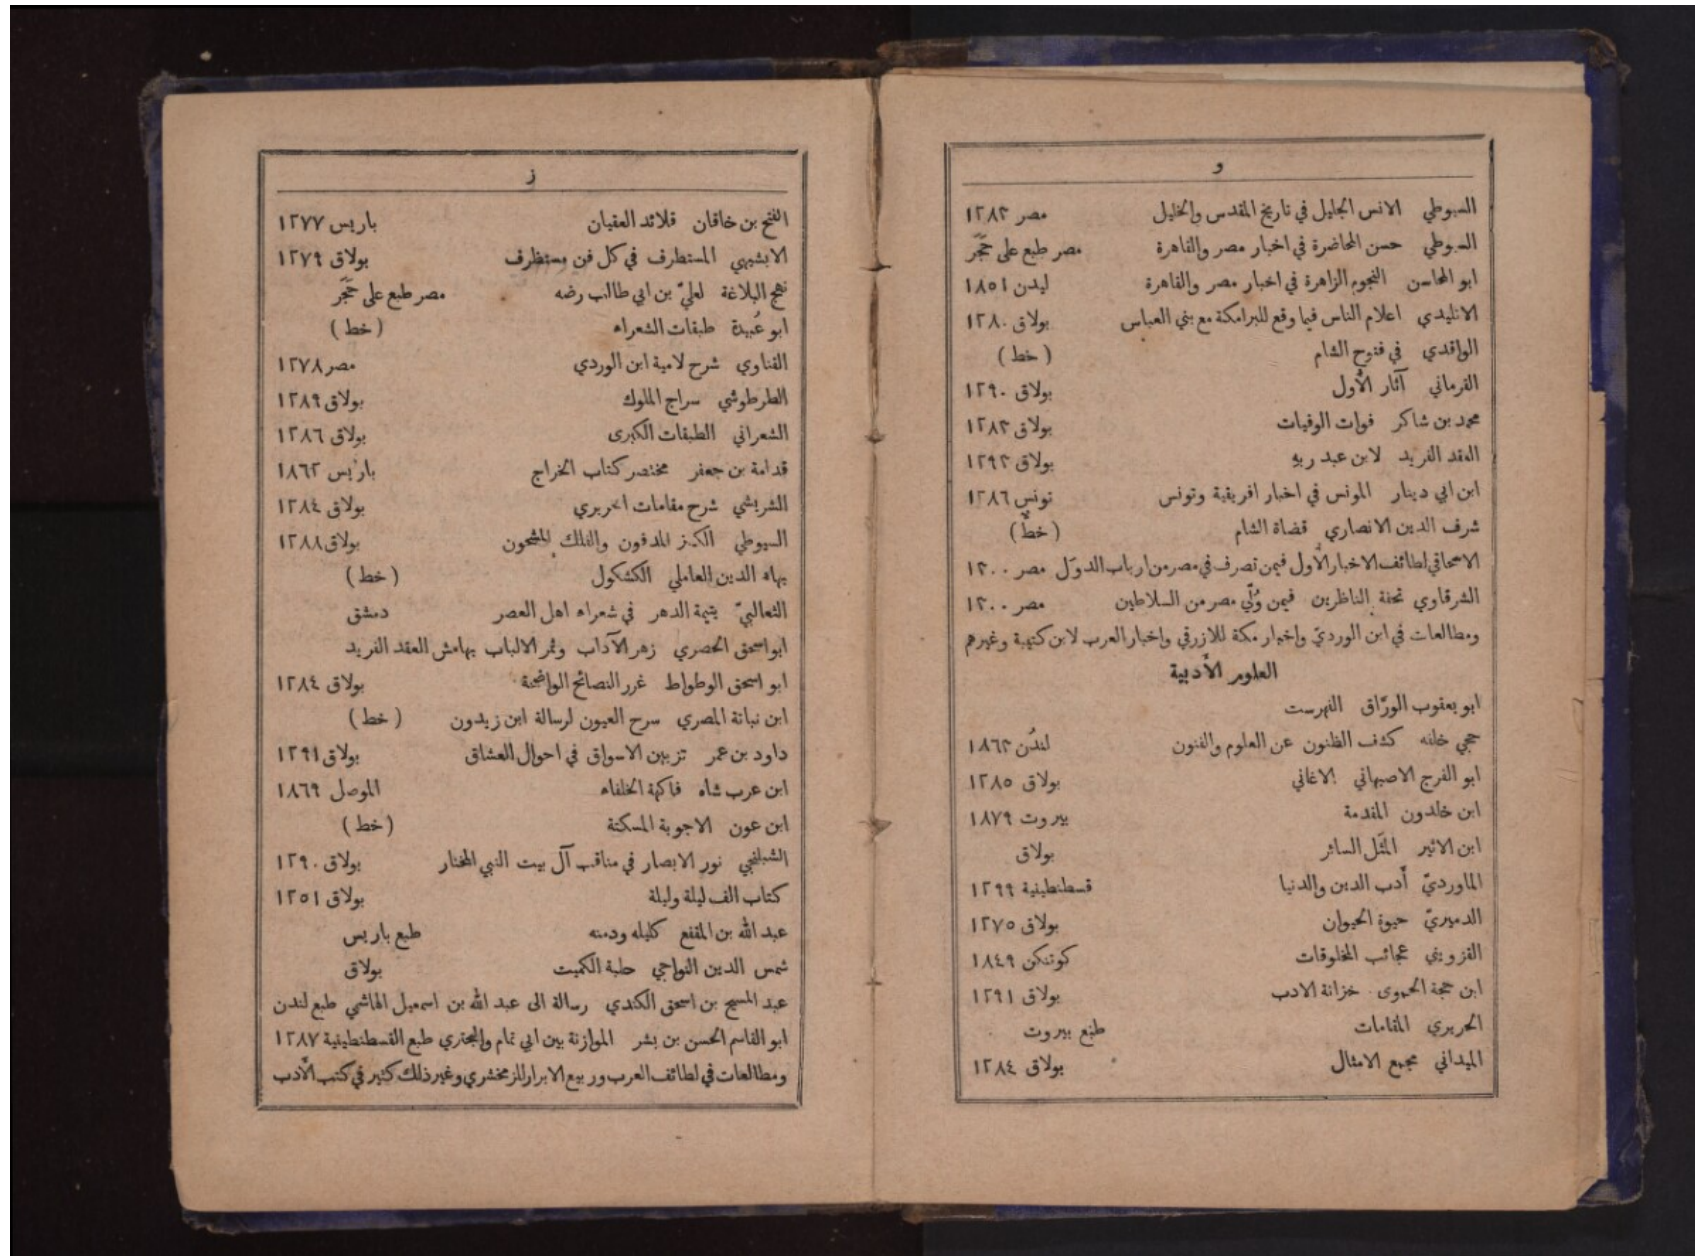 و
السيوطي الانس الجليل في تاريخ المقدس والخليل مصر ١٢٨٣
السيوطي حسن المحاضرة في اخبار مصر والقاهرة مصر طبع على حَجَر
ابو المحاسن النجوم الزاهرة في اخبار مصر والقاهرة ليدن ١٨٥١
الاتليدي اعلام الناس فيما وقع للبرامكة مع بني العباس بولاق ١٢٨٠
الواقدي في فتوح الشام (خط)
القرماني آثار الأُول بولاق ١٢٩٠
محمد بن شاكر فوات الوفيات بولاق ١٢٨٣
العقد الفريد لابن عبد ربهِ بولاق ١٢٩٣
ابن ابي دينار المونس في اخبار افريقية وتونس تونس ١٢٨٦
شرف الدين الانصاري قضاة الشام (خطّ)
الاسحاقي لطائف الاخبار الأُول فيمن تصرف في مصر من ارباب الدوَل مصر ١٣٠٠
الشرقاوي تحفة الناظرين فيمن وُلّي مصر من السلاطين مصر ١٣٠٠
ومطالعات في ابن الورديّ واخبار مكة للازرقي واخبار العرب لابن كتيبة وغيرهم
العلوم الأَدبية
ابو يعقوب الورّاق الفهرست
حجي خلفه كشف الظنون عن العلوم والفنون لندُن ١٨٦٣
ابو الفرج الاصبهاني الاغاني بولاق ١٢٨٥
ابن خلدون المقدمة بيروت ١٨٧٩
ابن الاثير المثَل السائر بولاق
الماورديّ أَدب الدين والدنيا قسطنطينية ١٢٩٩
الدميريّ حيوة الحيوان بولاق ١٢٧٥
القزويني عجائب المخلوقات كوتنكن ١٨٤٩
ابن حجة الحموى خزانة الادب بولاق ١٢٩١
الحريري المقامات طبع بيروت
الميداني مجمع الامثال بولاق ١٢٨٤
ز
الفتح بن خاقان قلائد العقيان باريس ١٢٧٧
الابشيهي المستطرف في كل فن مستظرف بولاق ١٢٧٩
نهج البلاغة لعليّ بن ابي طالب رضه مصر طبع على حَجَر
ابو عُبيدة طبقات الشعراء (خط)
القناوي شرح لامية ابن الوردي مصر ١٢٧٨
الطرطوشي سراج الملوك بولاق ١٢٨٩
الشعراني الطبقات الكبرى بولاق ١٢٨٦
قدامة بن جعفر مختصر كتاب الخراج باريس ١٨٦٢
الشريشي شرح مقامات الحريري بولاق ١٢٨٤
السيوطي الكنز المدفون والفلك المشحون بولاق ١٢٨٨
بهاء الدين العاملي الكشكول (خط)
الثعالبيّ يتيمة الدهر في شعراء اهل العصر دمشق
ابو اسحق الحصري زهر الآداب وثمر الالباب بهامش العقد الفريد
ابو اسحق الوطواط غرر النصائح الواضحة بولاق ١٢٨٤
ابن نباتة المصري سرح العيون لرسالة ابن زيدون (خط)
داود بن عمر تزيين الاسواق في احوال العشاق بولاق ١٢٩١
ابن عرب شاه فاكهة الخلفاء الموصل ١٨٦٩
ابن عون الاجوبة المسكتة (خط)
الشبلنجي نور الابصار في مناقب آل بيت النبي المختار بولاق ١٢٩٠
كتاب الف ليلة وليلة بولاق ١٢٥١
عبد الله بن المقفع كليله ودمنه طبع باريس
شمس الدين النواجي حلبة الكميت بولاق
عبد المسيح بن اسحق الكندي رسالة الى عبد الله بن اسمعيل الهاشمي طبع لندن
ابو القاسم الحسن بن بشر الموازنة بين ابي تمام والبحتري طبع القسطنطينية ١٢٨٧
ومطالعات في لطائف العرب وربيع الابرار للزمخشري وغير ذلك كثير في كتب الأَدب